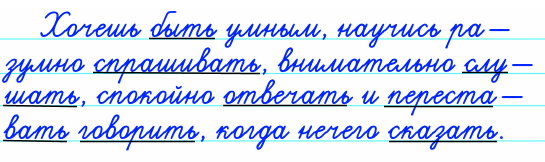 Хочешь быть умным, научись ра-
зумно спрашивать, внимательно слу-
шать, спокойно отвечать и переста-
вать говорить, когда нечего сказать.